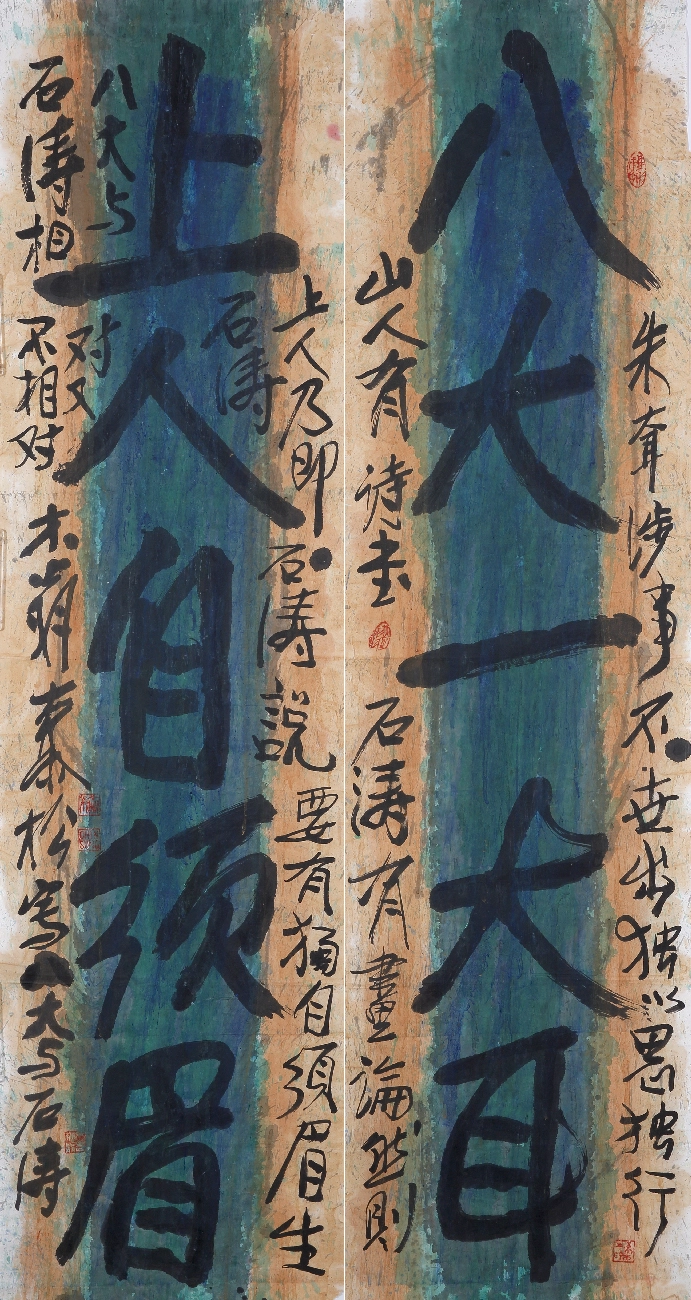 朱耷涉事不世出独以思独行
八大一大耳
山人有诗書
石涛有畫論然則
上人乃即石涛說要有獨自須眉生
石涛
上人自须眉
八大与
石涛相
对又
不相对
松写八大与石涛